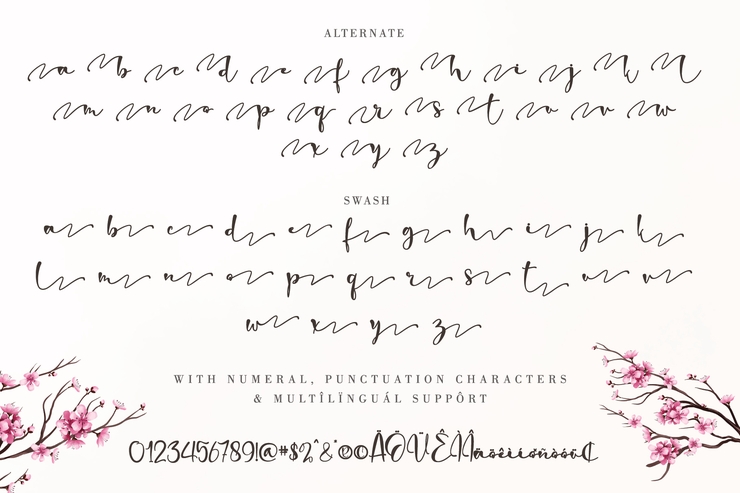 ALTERNATE
a b c d e f g h i j k l
m n o p q r s t u v w
x y z
SWASH
a b c d e f g h i j k
l m n o p q r s t u v
w x y z
WITH NUMERAL, PUNCTUATION CHARACTERS
& MULTÎLÏNGUÁL SUPPÔRT
0123456789!@#$2^&*